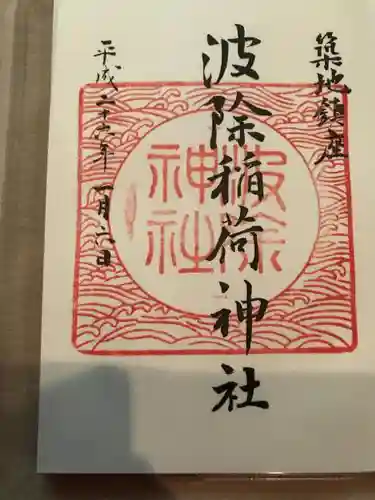 築地鎮座
波除稲荷神社
波除
神社
平成二十六年一月六日